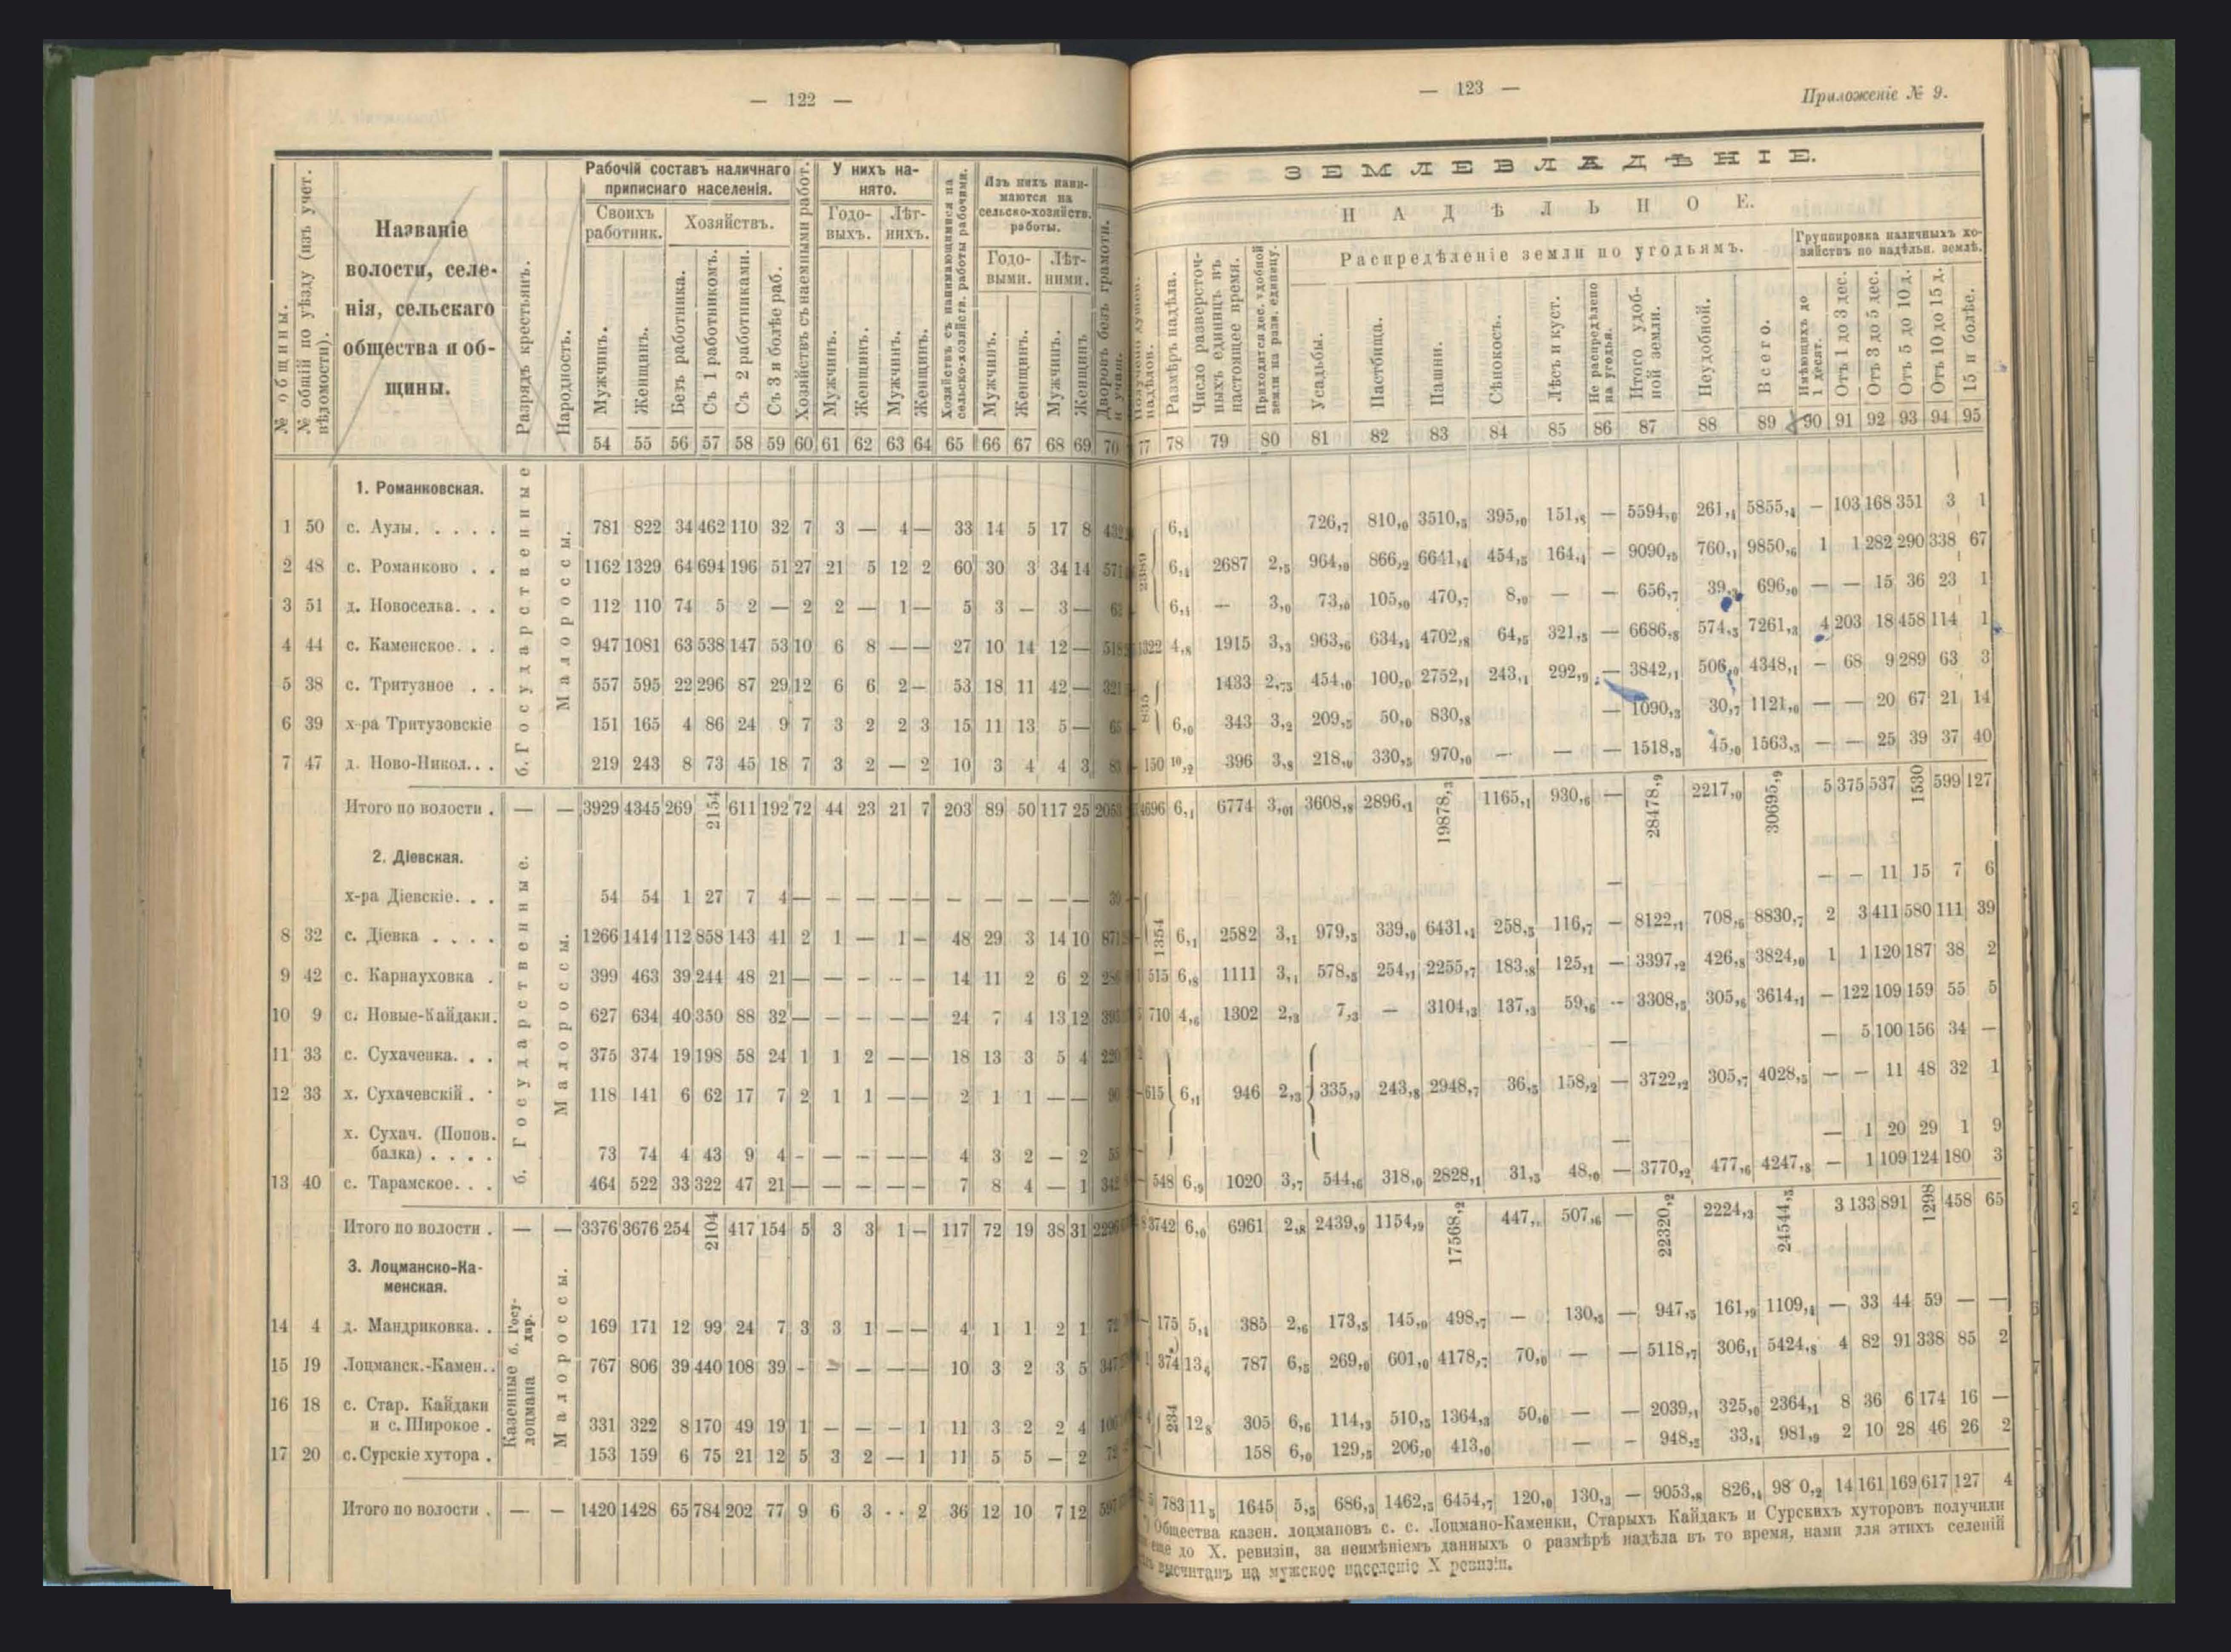 — 122 —
№ общины.
№ общій по уѣзду (изъ учет. вѣдомости).
Названіе
волости, селе-
нія, сельскаго
общества и об-
щины.
Разрядъ крестьянъ.
Народность.
Рабочій составъ наличнаго
приписнаго населенія.
Своихъ
работник.
Хозяйствъ.
Мужчинъ.
Женщинъ.
Безъ работника.
Съ 1 работникомъ.
Съ 2 работниками.
Съ 3 и болѣе раб.
Хозяйствъ съ наемными работ.
У нихъ на-
нято.
Годо-
выхъ.
Лѣт-
нихъ.
Мужчинъ.
Женщинъ.
Мужчинъ.
Женщинъ.
Хозяйствъ съ нанимающимися на
сельско-хозяйств. работы рабочими.
Изъ нихъ нани-
маются на
сельско-хозяйств.
работы.
Годо-
выми.
Лѣт-
ними.
Мужчинъ.
Женщинъ.
Мужчинъ.
Женщинъ
Дворовъ безъ грамотн.
и учащ.
54 55 56 57 58 59 60 61 62 63 64 65 66 67 68 69 70
б. Государственные
Малороссы.
1. Романковская.
1 50 с. Аулы. . . . . 781 822 34 462 110 32 7 3 — 4 — 33 14 5 17 8 432
2 48 с. Романково . . 1162 1329 64 694 196 51 27 21 5 12 2 60 30 3 34 14 571
3 51 д. Новоселка. . . 112 110 74 5 2 — 2 2 — 1 — 5 3 — 3 — 62
4 44 с. Каменское. . . 947 1081 63 538 147 53 10 6 8 — — 27 10 14 12 — 518
5 38 с. Тритузное . . 557 595 22 296 87 29 12 6 6 2 — 53 18 11 42 — 321
6 39 х-ра Тритузовскіе 151 165 4 86 24 9 7 3 2 2 3 15 11 13 5 — 65
7 47 д. Ново-Никол.. . 219 243 8 73 45 18 7 3 2 — 2 10 3 4 4 3 83
Итого по волости . — — 3929 4345 269 2154 611 192 72 44 23 21 7 203 89 50 117 25 2053
б. Государственные.
Малороссы.
2. Діевская.
х-ра Діевскіе. . . 54 54 1 27 7 4 — — — — — — — — — — 39
8 32 с. Діевка . . . . 1266 1414 112 858 143 41 2 1 — 1 — 48 29 3 14 10 871
9 42 с. Карнауховка . 399 463 39 244 48 21 — — — — — 14 11 2 6 2
10 9 с. Новые-Кайдаки. 627 634 40 350 88 32 — — — — — 24 7 4 13 12
11 33 с. Сухачевка. . . 375 374 19 198 58 24 1 1 2 — — 18 13 3 5 4 220
12 33 х. Сухачевскій . · 118 141 6 62 17 7 2 1 1 — — 2 1 1 — — 90
х. Сухач. (Попов.
балка) . . . . 73 74 4 43 9 4 - — — — — 4 3 2 — 2 55
13 40 с. Тарамское. . . 464 522 33 322 47 21 — — — — — 7 8 4 — 1 342
Итого по волости . — — 3376 3676 254 2104 417 154 5 3 3 1 — 117 72 19 38 31 2296
3. Лоцманско-Ка-
менская.
б. Госу-
дар.
Казенные
лоцмана
Малороссы.
14 4 д. Мандриковка. . 169 171 12 99 24 7 3 3 1 — — 4 1 1 2 1 72
15 19 Лоцманск.-Камен.. 767 806 39 440 108 39 - — — — — 10 3 2 3 5 347
16 18 с. Стар. Кайдаки
и с. Широкое . 331 322 8 170 49 19 1 — — — 1 11 3 2 2 4 106
17 20 с. Сурскіе хутора . 153 159 6 75 21 12 5 3 2 — 1 11 5 5 — 2 72
Итого по волости . — — 1420 1428 65 784 202 77 9 6 3 · · 2 36 12 10 7 12 597
— 123 —
Приложеніе № 9.
ЗЕМЛЕВЛАДѢНІЕ.
НАДѢЛЬНОЕ.
надѣловъ.
Размѣръ надѣла.
Число разверсточ-
ныхъ единицъ въ
настоящее время.
Приходится дес. удобной
земли на разв. единицу.
Распредѣленіе земли по угодьямъ.
Усадьбы.
Пастбища.
Пашни.
Сѣнокосъ.
Лѣсъ и куст.
Не распредѣлено
на угодья.
Итого удоб-
ной земли.
Неудобной.
Всего.
Группировка наличныхъ хо-
зяйствъ по надѣльн. землѣ.
Имѣющихъ до
1 десят.
Отъ 1 до 3 дес.
Отъ 3 до 5 дес.
Отъ 5 до 10 д.
Отъ 10 до 15 д.
15 и болѣе.
77 78 79 80 81 82 83 84 85 86 87 88 89 90 91 92 93 94 95
6,1 726,7 810,0 3510,5 395,0 151,8 — 5594,0 261,4 5855,4 — 103 168 351 3 1
2389 6,1 2687 2,5 964,0 866,2 6641,4 454,5 164,4 — 9090,5 760,1 9850,6 1 1 282 290 338 67
6,1 — 3,0 73,0 105,0 470,7 8,0 — — 656,7 39,3 696,0 — — 15 36 23 1
1322 4,8 1915 3,3 963,6 634,4 4702,8 64,5 321,5 — 6686,8 574,5 7261,3 4 203 18 458 114 1
835 1433 2,75 454,0 100,0 2752,1 243,1 292,9 — 3842,1 506,0 4348,1 — 68 9 289 63 3
6,0 343 3,2 209,5 50,0 830,8 — 1090,3 30,7 1121,0 — — 20 67 21 14
150 10,2 396 3,8 218,0 330,5 970,0 — — — 1518,5 45,0 1563,5 — — 25 39 37 40
4696 6,1 6774 3,01 3608,8 2896,1 19878,3 1165,1 930,6 — 28478,9 2217,0 30695,9 5 375 537 1530 599 127
— — — 11 15 7 6
1354 6,1 2582 3,1 979,5 339,0 6431,4 258,5 116,7 — 8122,1 708,6 8830,7 2 3 411 580 111 39
515 6,8 1111 3,1 578,5 254,1 2255,7 183,8 125,1 — 3397,2 426,8 3824,0 1 1 120 187 38 2
710 4,6 1302 2,3 7,3 — 3104,3 137,3 59,6 -- 3308,5 305,6 3614,1 — 122 109 159 55 5
— — 5 100 156 34 —
615 6,1 946 2,3 335,0 243,8 2948,7 36,5 158,2 — 3722,2 305,7 4028,5 — — 11 48 32 1
— — 1 20 29 1 9
548 6,9 1020 3,7 544,6 318,0 2828,1 31,5 48,0 — 3770,2 477,6 4247,8 — 1 109 124 180 3
3742 6,0 6961 2,8 2439,9 1154,9 17568,2 447, 507,6 — 22320,2 2224,3 24544,5 3 133 891 1298 458 65
175 5,4 385 2,6 173,5 145,0 498,7 — 130,3 — 947,5 161,9 1109,4 — 33 44 59 — —
*)
374 13,6 787 6,5 269,0 601,0 4178,7 70,0 — — 5118,7 306,1 5424,8 4 82 91 338 85 2
234 12,8 305 6,6 114,3 510,5 1364,3 50,0 — — 2039,1 325,0 2364,1 8 36 6 174 16 —
158 6,0 129,5 206,0 413,0 — - 948,5 33,4 981,9 2 10 28 46 26 2
783 11,5 1645 5,5 686,3 1462,5 6454,7 120,0 130,3 — 9053,8 826,4 98 0,2 14 161 169 617 127 4
*) Общества казен. лоцмановъ с. с. Лоцмано-Каменки, Старыхъ Кайдакъ и Сурскихъ хуторовъ получили
еще до X. ревизіи, за неимѣніемъ данныхъ о размѣрѣ надѣла въ то время, нами для этихъ селеній
высчитанъ на мужское населеніе X ревизіи.